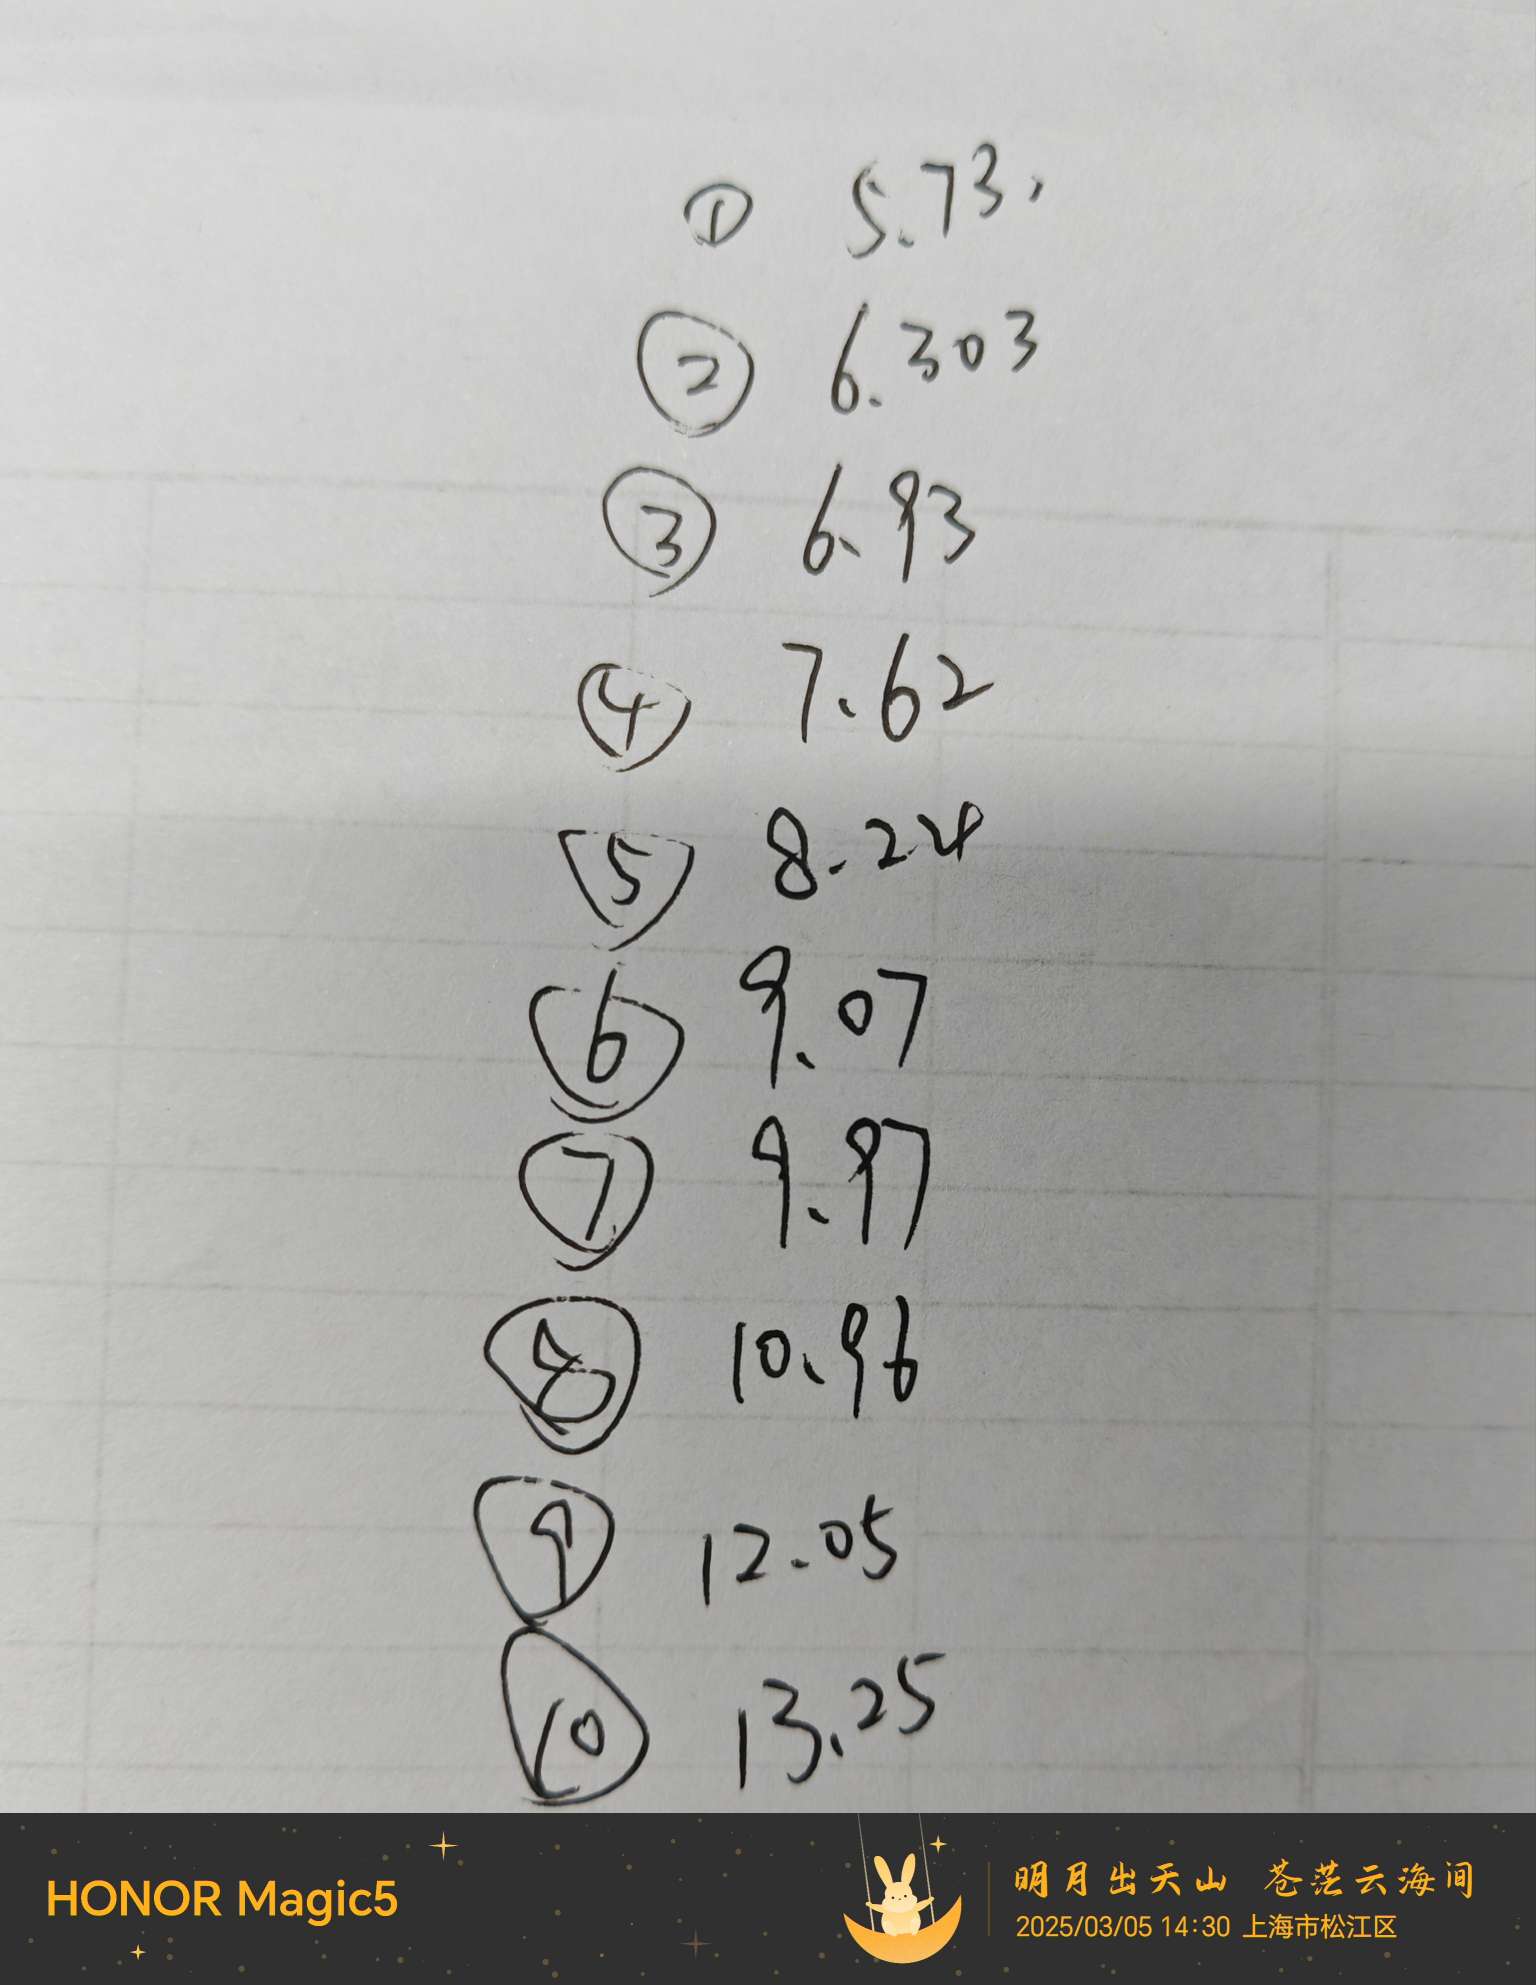 ① 5.73,
② 6.303
③ 6.93
④ 7.62
⑤ 8.24
⑥ 9.07
⑦ 9.97
⑧ 10.96
⑨ 12.05
⑩ 13.25
HONOR Magic5
明月出天山 苍茫云海间
2025/03/05 14:30 上海市松江区